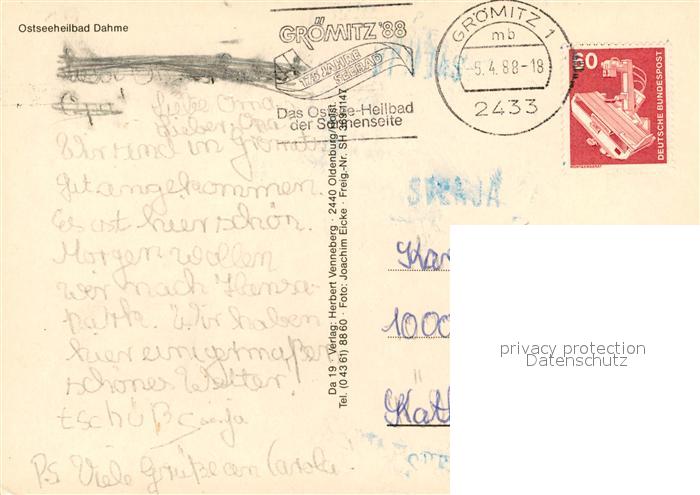 Ostseeheilbad Dahme
GRÖMITZ '88
175 JAHRE
SEEBAD
Das Ostsee-Heilbad
der Sonnenseite
GRÖMITZ 1
mb
-5.4.88-18
2433
60
DEUTSCHE BUNDESPOST
Opa
liebe Oma
lieber Opa
Wir sind in Grömitz
gut angekommen.
Es ist hier schön.
Morgen wollen
wir nach Hansa-
park. Wir haben
hier einigermaßen
schönes Wetter.
tschüß
P.S Viele Grüße an Carola.
Da 19 · Verlag: Herbert Venneberg · 2440 Oldenburg/Holst.
Tel. (0 43 61) 88 60 · Foto: Joachim Eicke · Freig.-Nr. SH 369-1147
SVENJA
Kar
1000
Kat
privacy protection
Datenschutz